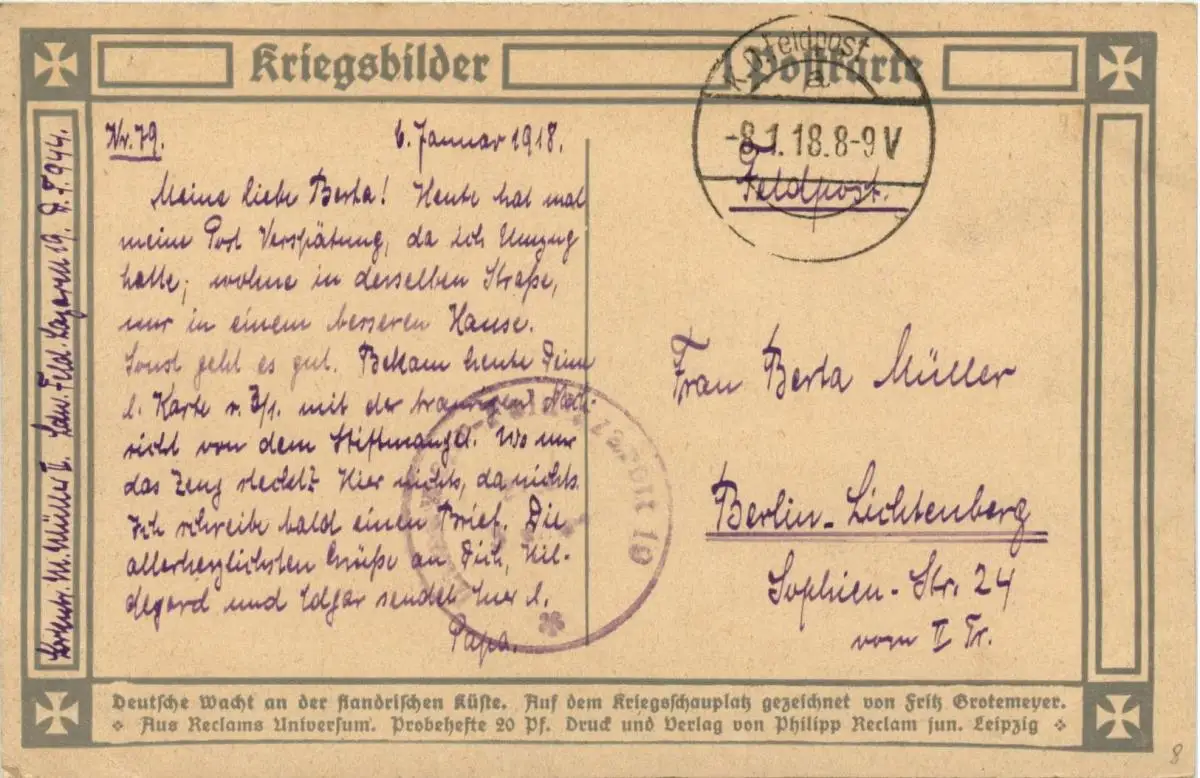 Kriegsbilder Postkarte
K.D. Feldpost
a
-8.1.18.8-9V
Feldpost.
Nr. 79. 6. Januar 1918.
Meine liebe Berta! Heute hat mal
meine Post Verspätung, da ich Umzug
hatte; wohne in derselben Straße,
nur in einem besseren Hause.
Sonst geht es gut. Bekam heute Deine
l. Karte v. 3/1. mit der traurigen Nach-
richt von dem Stiftmangel. Wo nur
das Zeug steckt? Hier nichts, da nichts.
Ich schreibe bald einen Brief. Die
allerherzlichsten Grüße an Dich, Hil-
degard und Edgar sendet Euer l.
Papa.
M. Müller II. Feld-Lazarett 19. D.F. 944.
Frau Berta Müller
Berlin-Lichtenberg
Sophien-Str. 24
vorn II Tr.
Lazarett 19
Deutsche Wacht an der flandrischen Küste. Auf dem Kriegsschauplatz gezeichnet von Fritz Grotemeyer.
Aus Reclams Universum. Probehefte 20 Pf. Druck und Verlag von Philipp Reclam jun. Leipzig
8